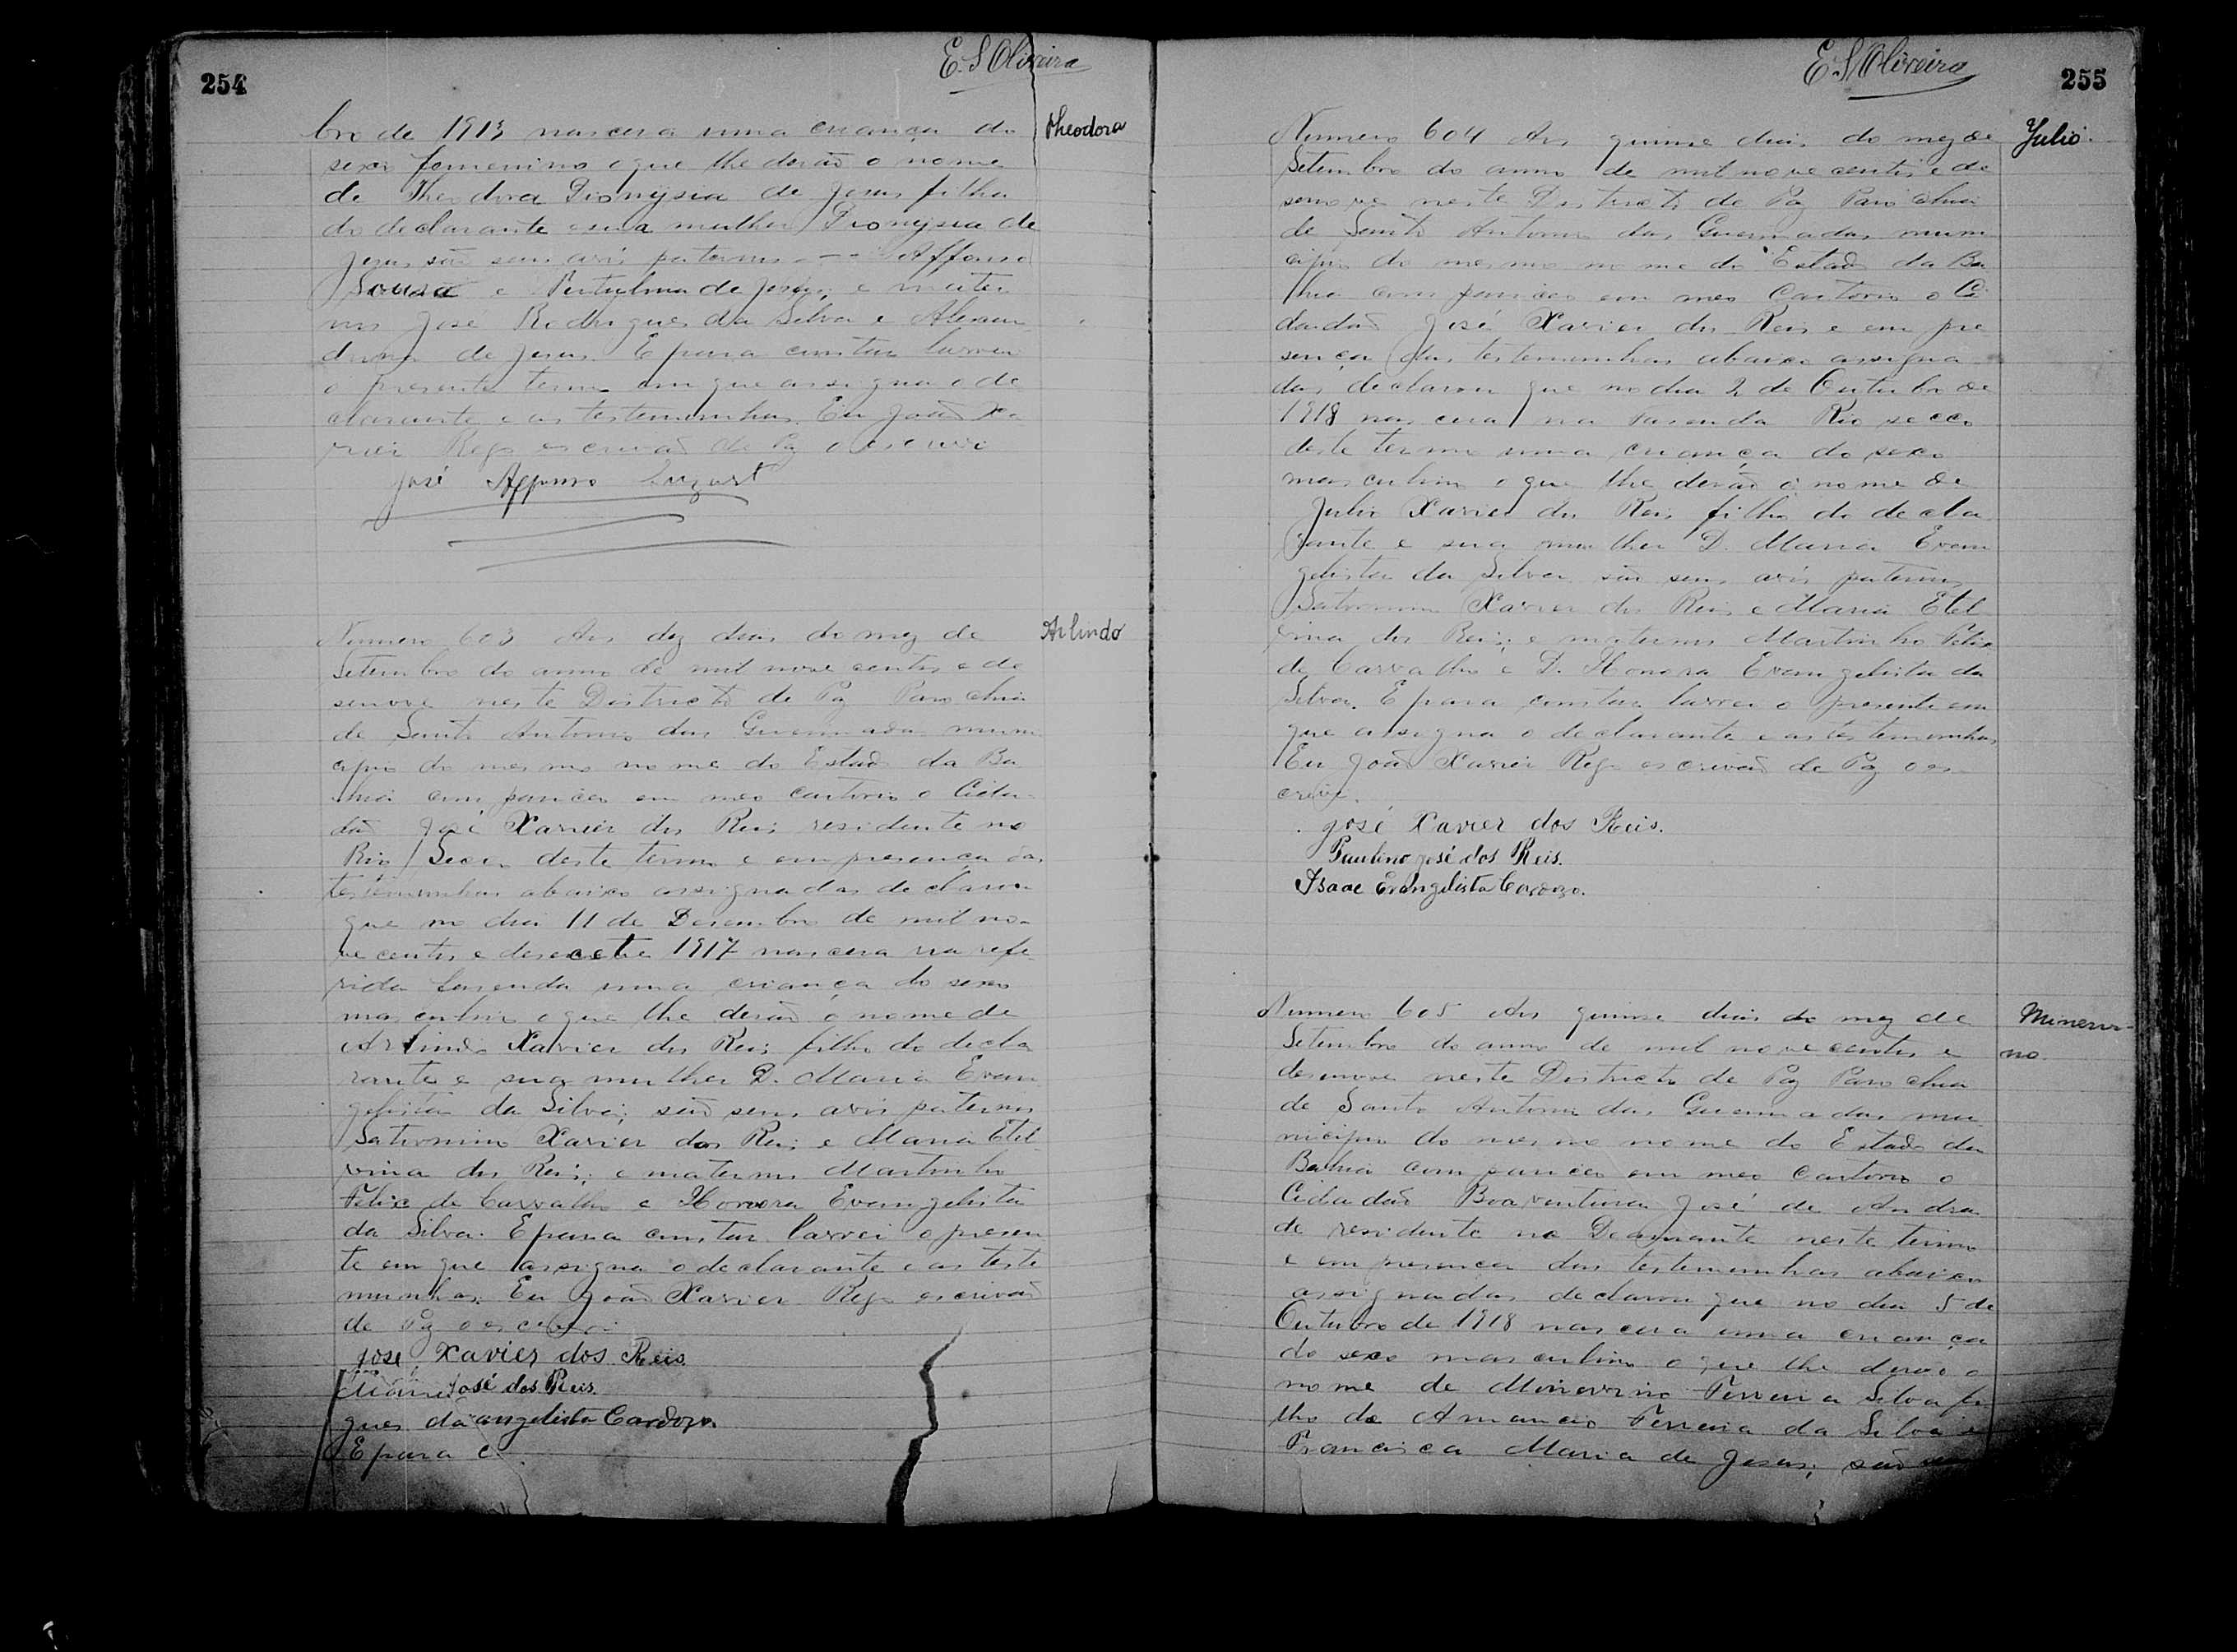 254
E. S. Oliveira
bro de 1913 nascera uma criança do
Theodora
sexo femenino o que lhe derão o nome
de Theodora Dionysia de Jesus filha
do declarante e sua mulher Dionysia de
Jesus são seus avós paternos Affonso
Sousa e de Jesus; e mater
nos José Rodrigues da Silva e Alexan
drina de Jesus. E para constar lavrei
o presente termo em que assigna o de
clarante e as testemunhas. Eu João Xa
vier Rego escrivão de Paz o escrevi
José Affonso
Numero 603 Aos dez dias do mez de
Arlindo
Setembro do anno de mil nove centos e de
senove neste Districto de Paz Parochia
de Santo Antonio das Queimadas muni
cipio do mesmo nome do Estado da Ba
hia compareceo em meo cartorio o Cida
dão José Xavier dos Reis residente no
Rio Secco deste termo e em presença das
testemunhas abaixo assignadas declarou
que no dia 11 de Desembro de mil no
ve centos e desecete 1917 nascera na refe
rida fasenda uma criança do sexo
masculino o que lhe derão o nome de
Arlindo Xavier dos Reis filho do decla
rante e sua mulher D. Maria Evan
gelista da Silva; são seus avós paternos
Satronino Xavier dos Reis e Maria Etel
vina dos Reis; e maternos Martinho
Felix de Carvalho e Honora Evangelista
da Silva. E para constar lavrei o presen
te em que assigna o declarante e as teste
munhas. Eu João Xavier Rego escrivão
de Paz o escrevi
José Xavier dos Reis.
Maria José dos Reis.
gues da angelista Cardozo.
E para c
E. S. Oliveira
255
Numero 604 Aos quinse dias do mez de
Julio
Setembro do anno de mil nove centos e de
senove neste Districto de Paz Parochia
de Santo Antonio das Queimadas muni
cipio do mesmo nome do Estado da Ba
hia compareceo em meo Cartorio o Ci
dadão José Xavier dos Reis e em pre
sença das testemunhas abaixo assigna
das declarou que no dia 2 de Outubro de
1918 nascera na Fasenda Rio secco
deste termo uma criança do sexo
masculino o que lhe derão o nome de
Julio Xavier dos Reis filho do decla
rante e sua mulher D. Maria Evan
gelista da Silva são seus avós paternos
Satronino Xavier dos Reis e Maria Etel
vina dos Reis; e maternos Martinho Felix
de Carvalho e D. Honora Evangelista da
Silva. E para constar lavrei o presente em
que assigna o declarante e as testemunhas.
Eu João Xavier Rego escrivão de Paz o es
crevi.
José Xavier dos Reis.
Paulino José dos Reis.
Isaac Evangelista Cardozo.
Numero 605 Aos quinse dias do mez de
Minervi
Setembro do anno de mil nove centos e
no
desenove neste Districto de Paz Parochia
de Santo Antonio das Queimadas mu
nicipio do mesmo nome do Estado da
Bahia compareceo em meo cartorio o
Cidadão Boaventura José de Andra
de residente no Deamante neste termo
e em presença das testemunhas abaixo
assignadas declarou que no dia 5 de
Outubro de 1918 nascera uma criança
do sexo masculino o que lhe derão o
nome de Minervino Ferreira Silva fi
lho de Amancio Ferreira da Silva e
Francisca Maria de Jesus; são seus